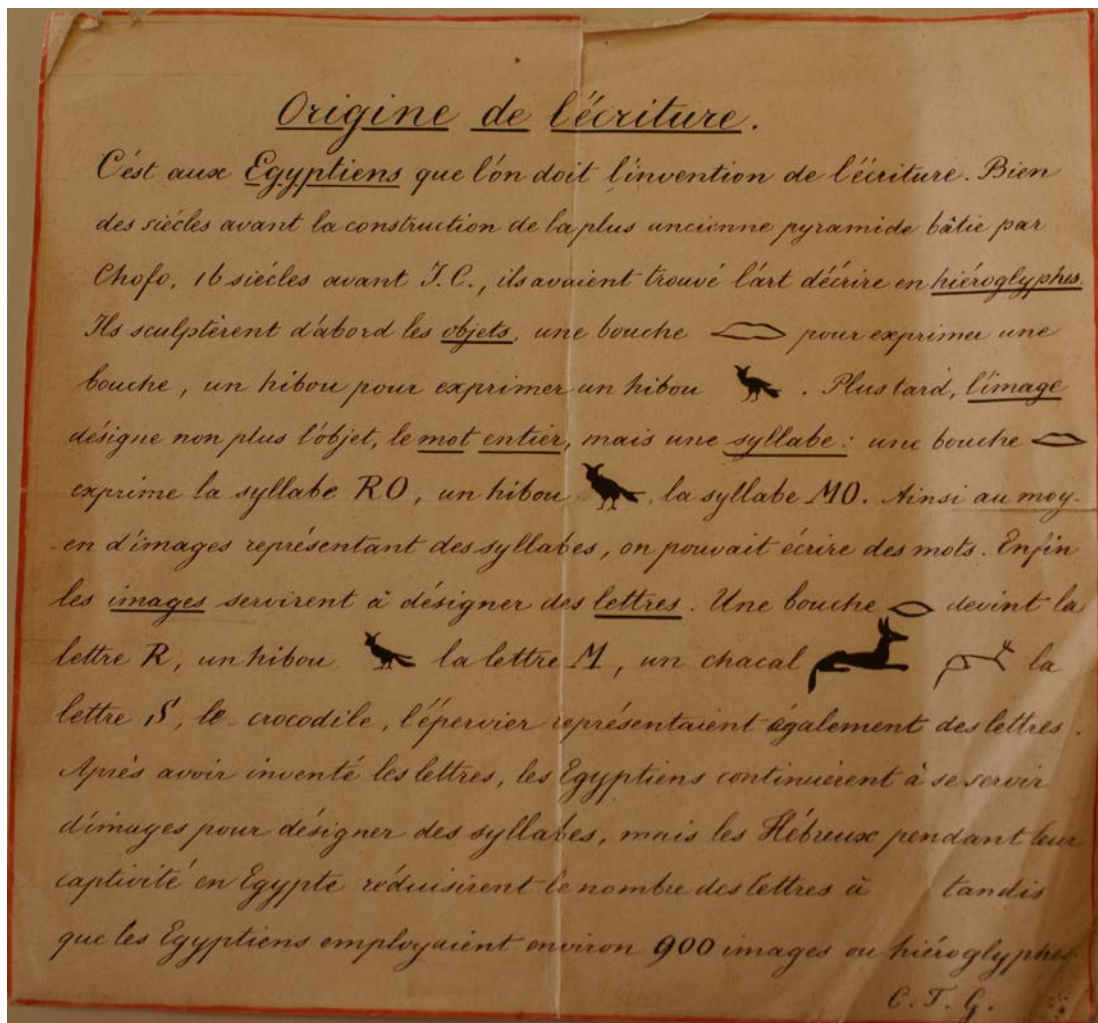 Origine de l'écriture.
C'est aux Egyptiens que l'on doit l'invention de l'écriture. Bien
des siècles avant la construction de la plus ancienne pyramide bâtie par
Chofo, 16 siècles avant J.C., ils avaient trouvé l'art d'écrire en hiéroglyphes.
Ils sculptèrent d'abord les objets, une bouche pour exprimer une
bouche, un hibou pour exprimer un hibou . Plus tard, l'image
désigne non plus l'objet, le mot entier, mais une syllabe: une bouche
exprime la syllabe RO, un hibou , la syllabe MO. Ainsi au moy-
-en d'images représentant des syllabes, on pouvait écrire des mots. Enfin
les images servirent à désigner des lettres. Une bouche devint la
lettre R, un hibou la lettre M, un chacal la
lettre S, le crocodile, l'épervier représentaient également des lettres.
Après avoir inventé les lettres, les Egyptiens continuèrent à se servir
d'images pour désigner des syllabes, mais les Hébreux pendant leur
captivité en Egypte réduisirent le nombre des lettres à tandis
que les Egyptiens employaient environ 900 images ou hiéroglyphes
C. T. G.